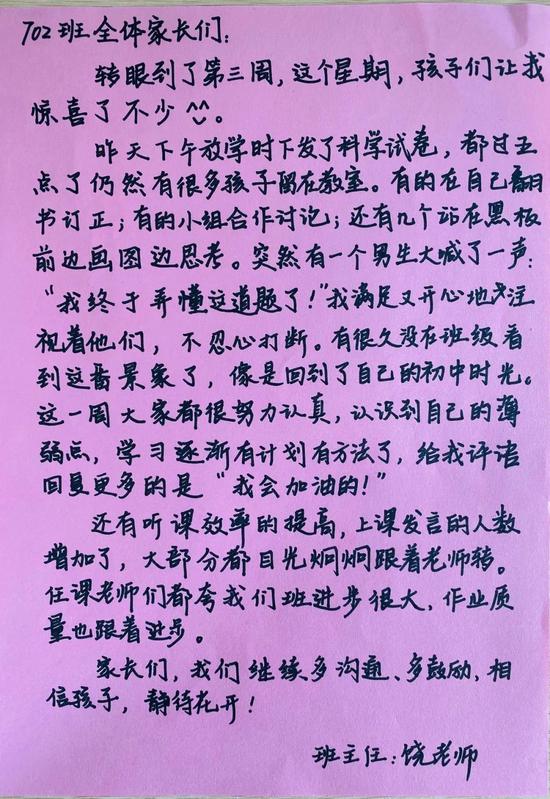 702班全体家长们:
转眼到了第三周,这个星期,孩子们让我
惊喜了不少^^。
昨天下午放学时下发了科学试卷,都过五
点了仍然有很多孩子留在教室。有的在自己翻
书订正;有的小组合作讨论;还有几个站在黑板
前边画图边思考。突然有一个男生大喊了一声:
“我终于弄懂这道题了!”我满足又开心地注
视着他们,不忍心打断。有很久没在班级看
到这番景象了,像是回到了自己的初中时光。
这一周大家都很努力认真,认识到自己的薄
弱点,学习逐渐有计划有方法了,给我评语
回复更多的是“我会加油的!”
还有听课效率的提高,上课发言的人数
增加了,大部分都目光炯炯跟着老师转。
任课老师们都夸我们班进步很大,作业质
量也跟着进步。
家长们,我们继续多沟通、多鼓励,相
信孩子,静待花开!
班主任:饶老师